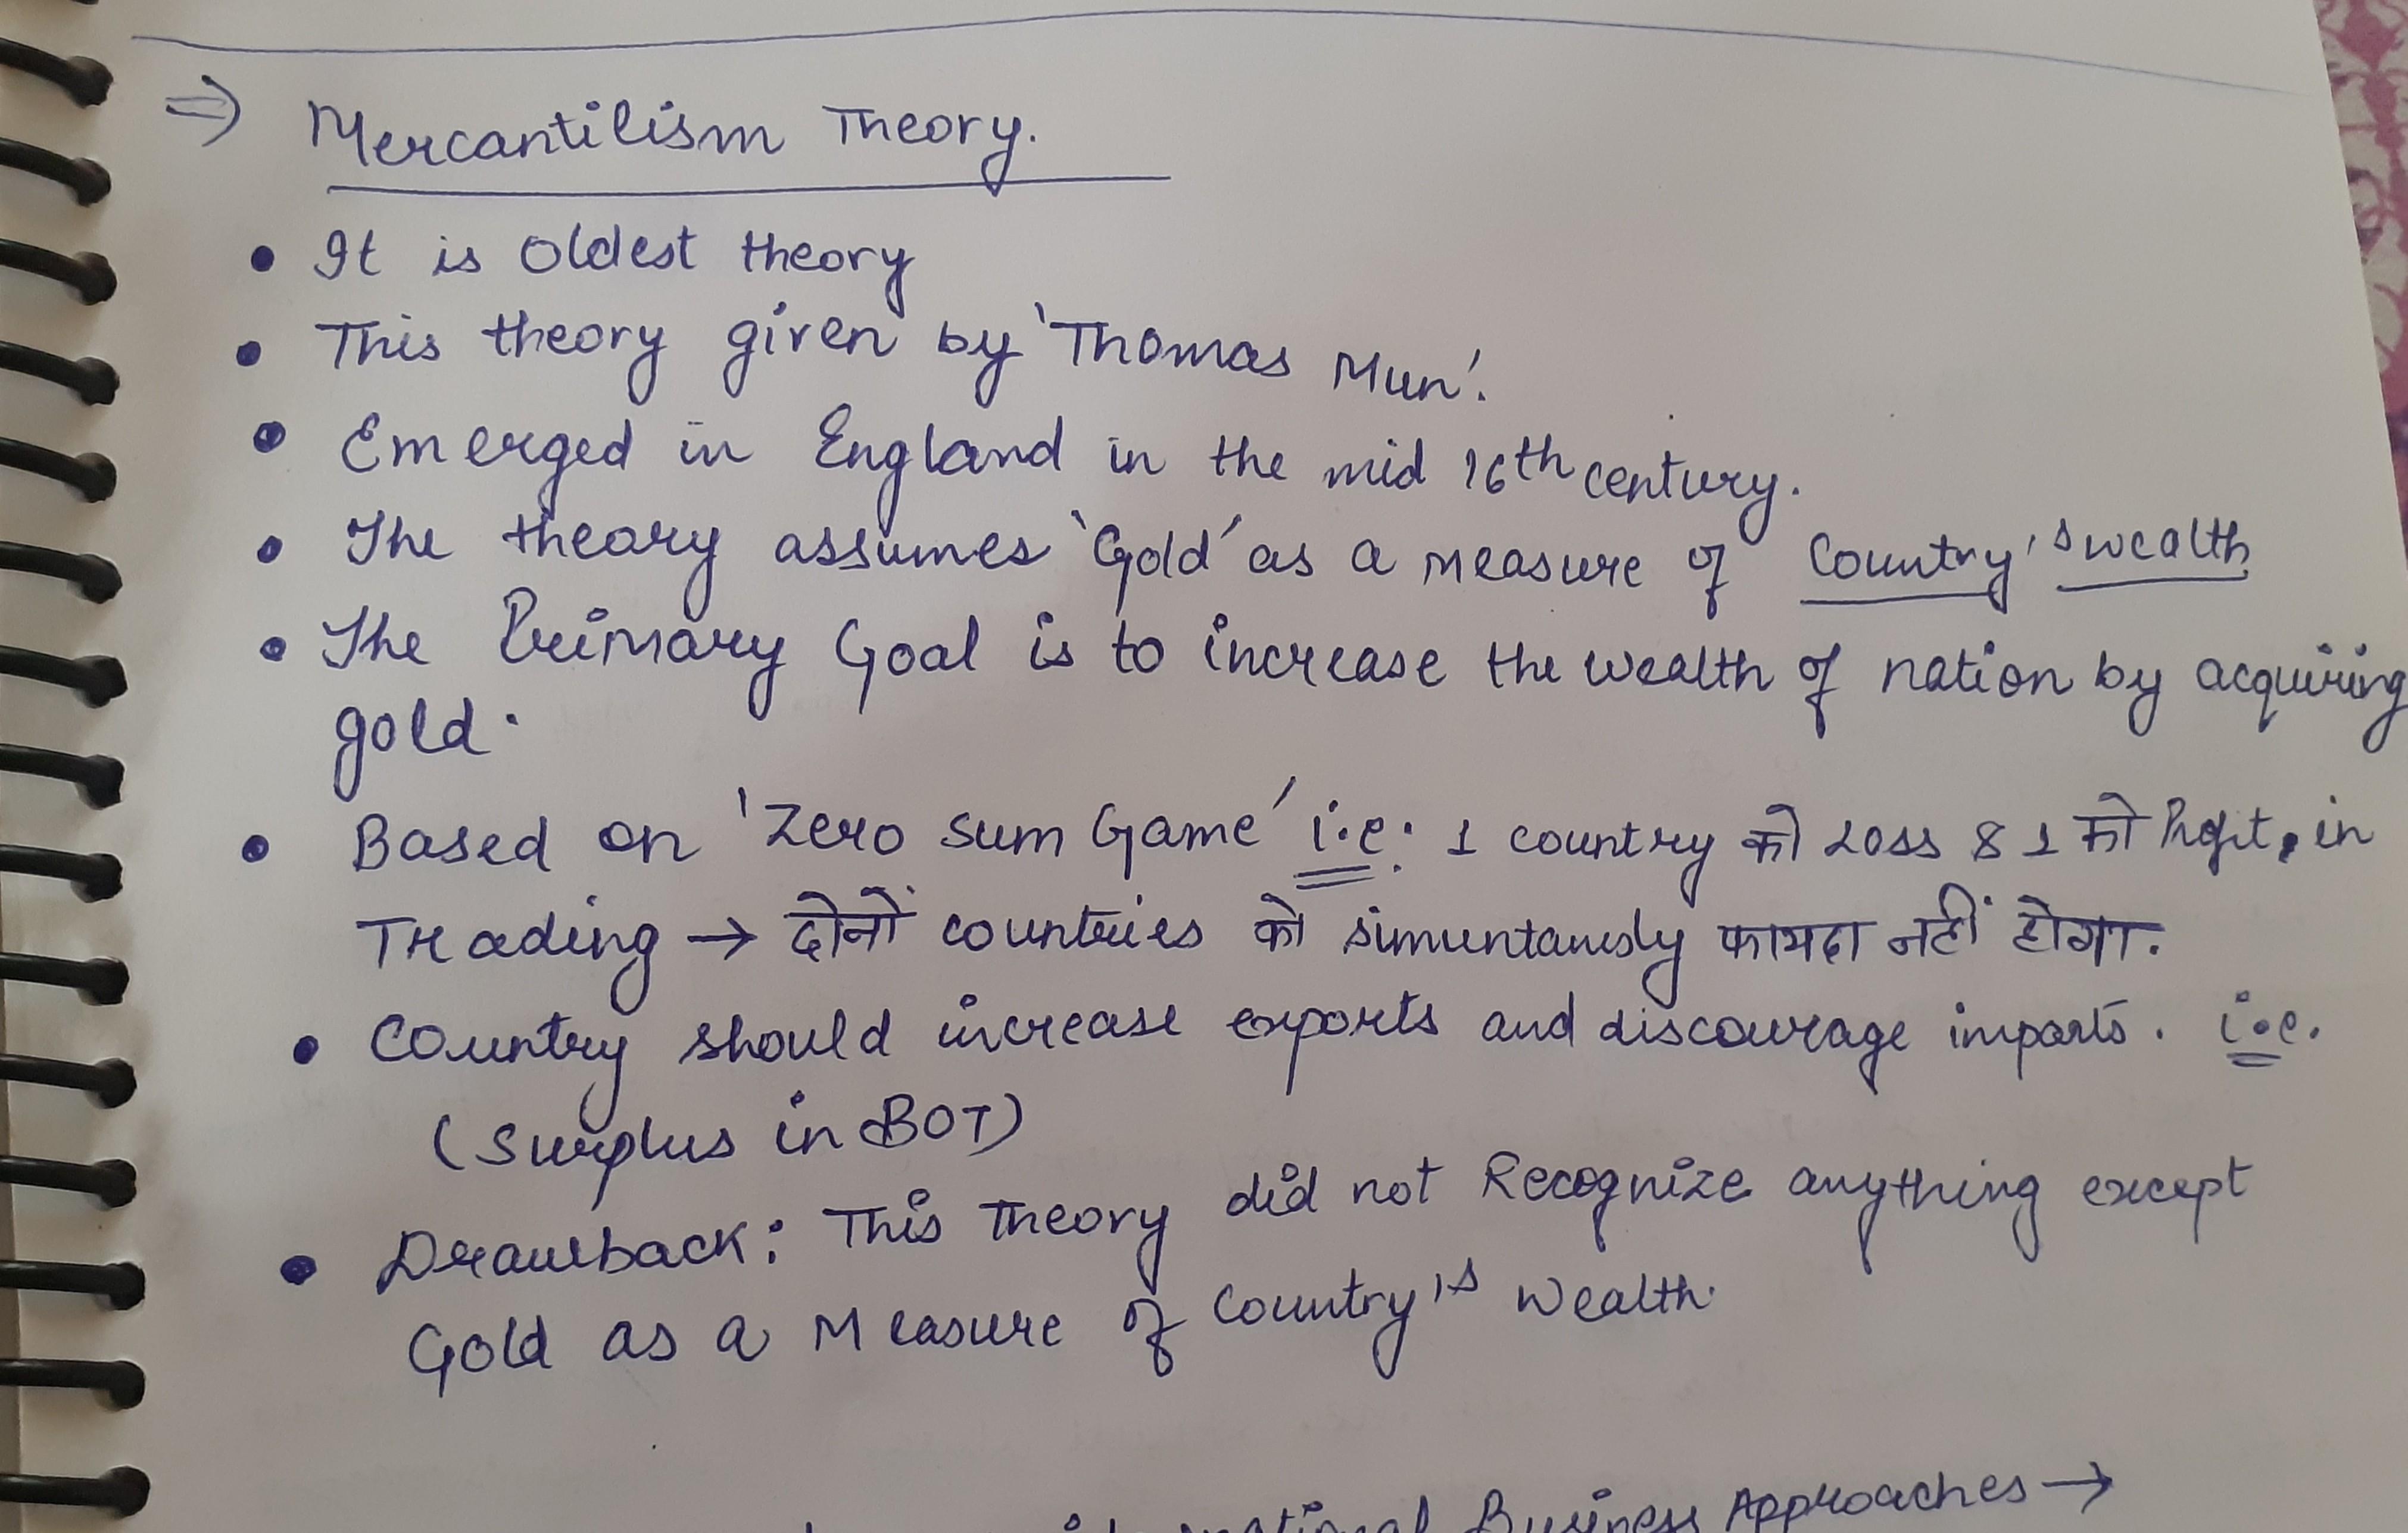 ⇒ Mercantilism Theory.
• It is oldest theory
• This theory given by 'Thomas Mun'.
• Emerged in England in the mid 16th century.
• The theory assumes 'Gold' as a measure of Country's wealth
• The Primary Goal is to increase the wealth of nation by acquiring
gold.
• Based on 'Zero sum Game' i.e: 1 country को Loss & 1 को Profit, in
Trading → दोनों countries को simuntanusly फायदा नहीं होगा.
• Country should increase exports and discourage imports. i.e.
(Surplus in BOT)
• Drawback: This theory did not Recognize anything except
Gold as a Measure of Country's Wealth.
Business Approaches →